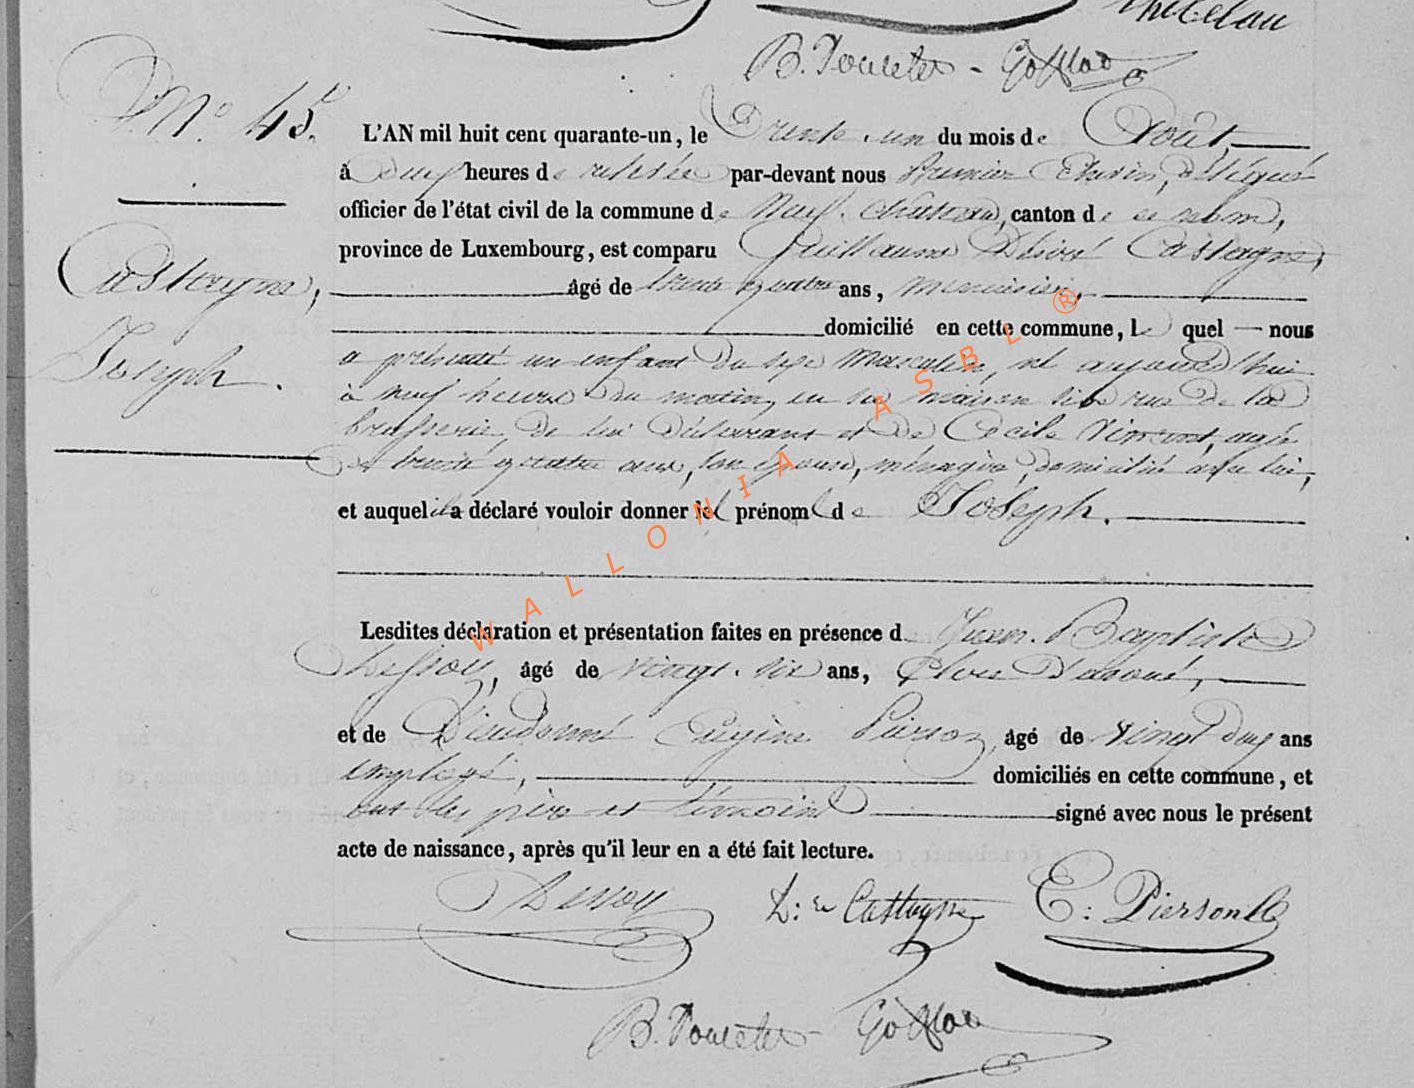 B. Poncelet - Goffinet
N.º 45.
L'AN mil huit cent quarante-un, le Trente-un du mois de Août,
à deux heures de relevée par-devant nous Premier Echevin, délégué
officier de l'état civil de la commune de Neufchateau, canton de ce nom,
province de Luxembourg, est comparu Guillaume Désiré Castagne,
Castagne,
âgé de trente quatre ans, menuisier,
domicilié en cette commune, le quel nous
Joseph.
a présenté un enfant du sexe masculin, né aujourd'hui
à neuf heures du matin, en sa maison sise rue de la
brasserie, de lui déclarant et de Cécile Vincent, agée
de trente quatre ans, son épouse, ménagère, domiciliée avec lui,
et auquel il a déclaré vouloir donner le prénom de Joseph.
Lesdites déclaration et présentation faites en présence de Jean-Baptiste
Dessoy, âgé de vingt-six ans, Clerc d'avoué,
et de Dieudonné Eugène Pierson, âgé de vingt deux ans
employé, domiciliés en cette commune, et
ont les père et témoins signé avec nous le présent
acte de naissance, après qu'il leur en a été fait lecture.
Dessoy D: Castagne E: Pierson
B. Poncelet - Goffinet
WALLONIA ASBL ®